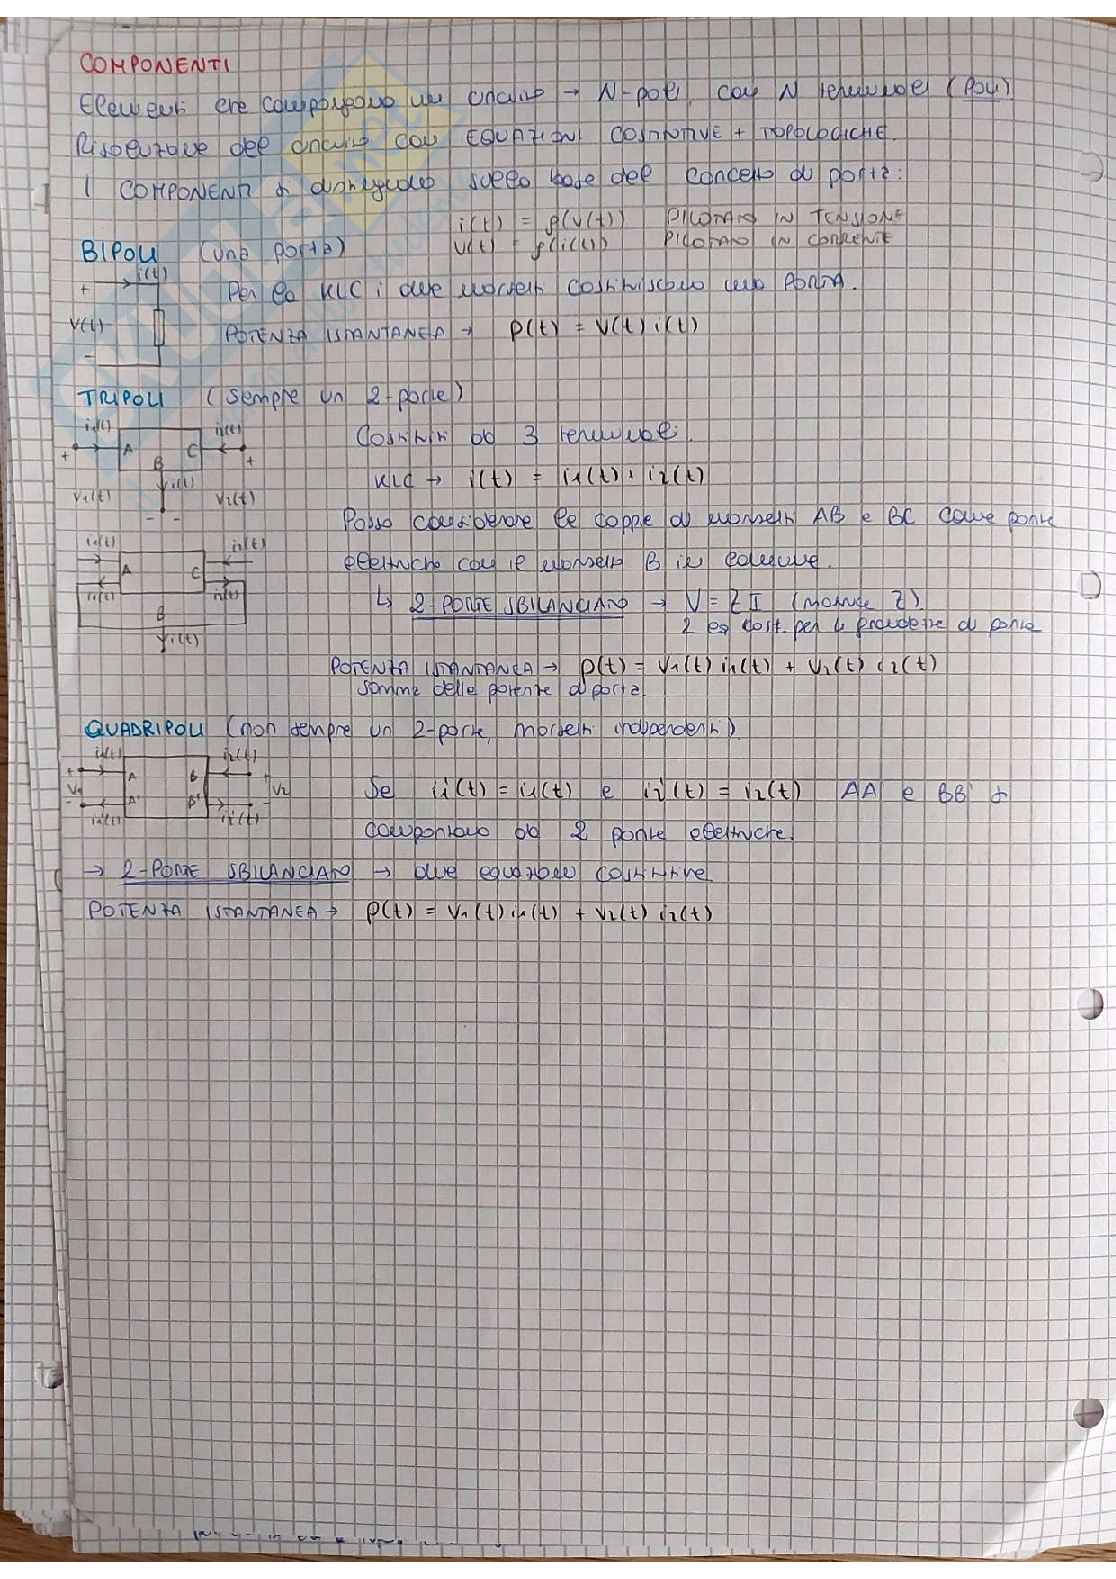 COMPONENTI
Elementi che compongono un circuito → N-poli, con N terminali (POLI)
Risoluzione del circuito con EQUAZIONI COSTITUTIVE + TOPOLOGICHE.
I COMPONENTI si distinguono sulla base del concetto di porta:
i(t) = g(v(t)) PILOTATO IN TENSIONE
BIPOLI (una porta) v(t) = f(i(t)) PILOTATO IN CORRENTE
i(t)
+
Per la KLC i due morsetti costituiscono una PORTA.
v(t)
POTENZA ISTANTANEA → p(t) = v(t) i(t)
-
TRIPOLI (sempre un 2-porte)
i1(t) i2(t)
Costituiti da 3 terminali.
+ A C +
B
i(t)
KLC → i(t) = i1(t) + i2(t)
v1(t) v2(t)
- -
Posso considerare le coppie di morsetti AB e BC come porte
i1(t) i2(t)
elettriche con il morsetto B in comune.
A C
i1(t) i2(t)
↳ 2-PORTE SBILANCIATO → V = ZI (matrice Z)
B
2 eq. cost. per le grandezze di porta
i(t)
POTENZA ISTANTANEA → p(t) = v1(t) i1(t) + v2(t) i2(t)
somma delle potenze di porta.
QUADRIPOLI (non sempre un 2-porte, morsetti indipendenti).
i1(t) i2(t)
+ A B +
V1 V2
Se i1'(t) = i1(t) e i2'(t) = i2(t) AA' e BB' si
- A' B' -
i1'(t) i2'(t)
comportano da 2 porte elettriche.
→ 2-PORTE SBILANCIATO → due equazioni costitutive
POTENZA ISTANTANEA → p(t) = v1(t) i1(t) + v2(t) i2(t)